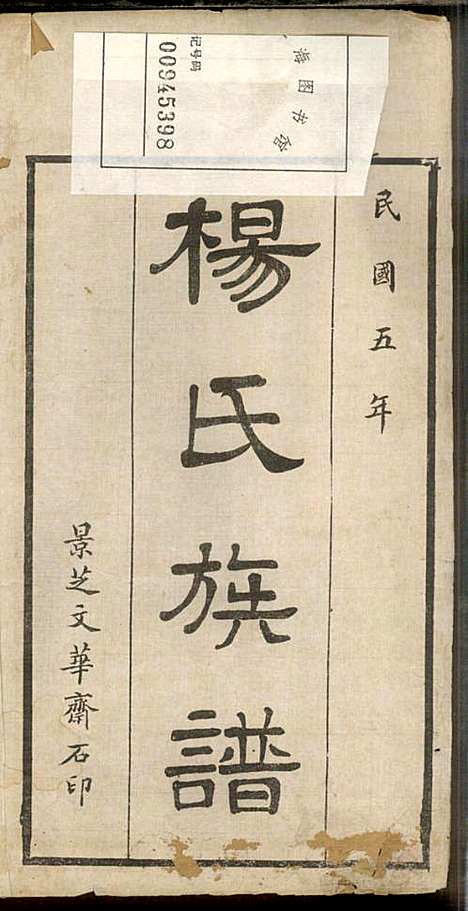 海图书馆
记号码
00945398
民國五年
楊氏族譜
景芝文華齋石印